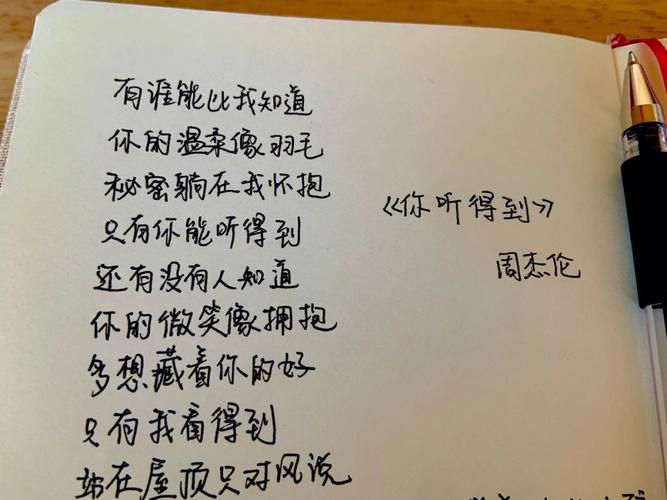 有谁能比我知道
你的温柔像羽毛
秘密躺在我怀抱
只有你能听得到
还有没有人知道
你的微笑像拥抱
多想藏着你的好
只有我看得到
站在屋顶只对风说
《你听得到》
周杰伦